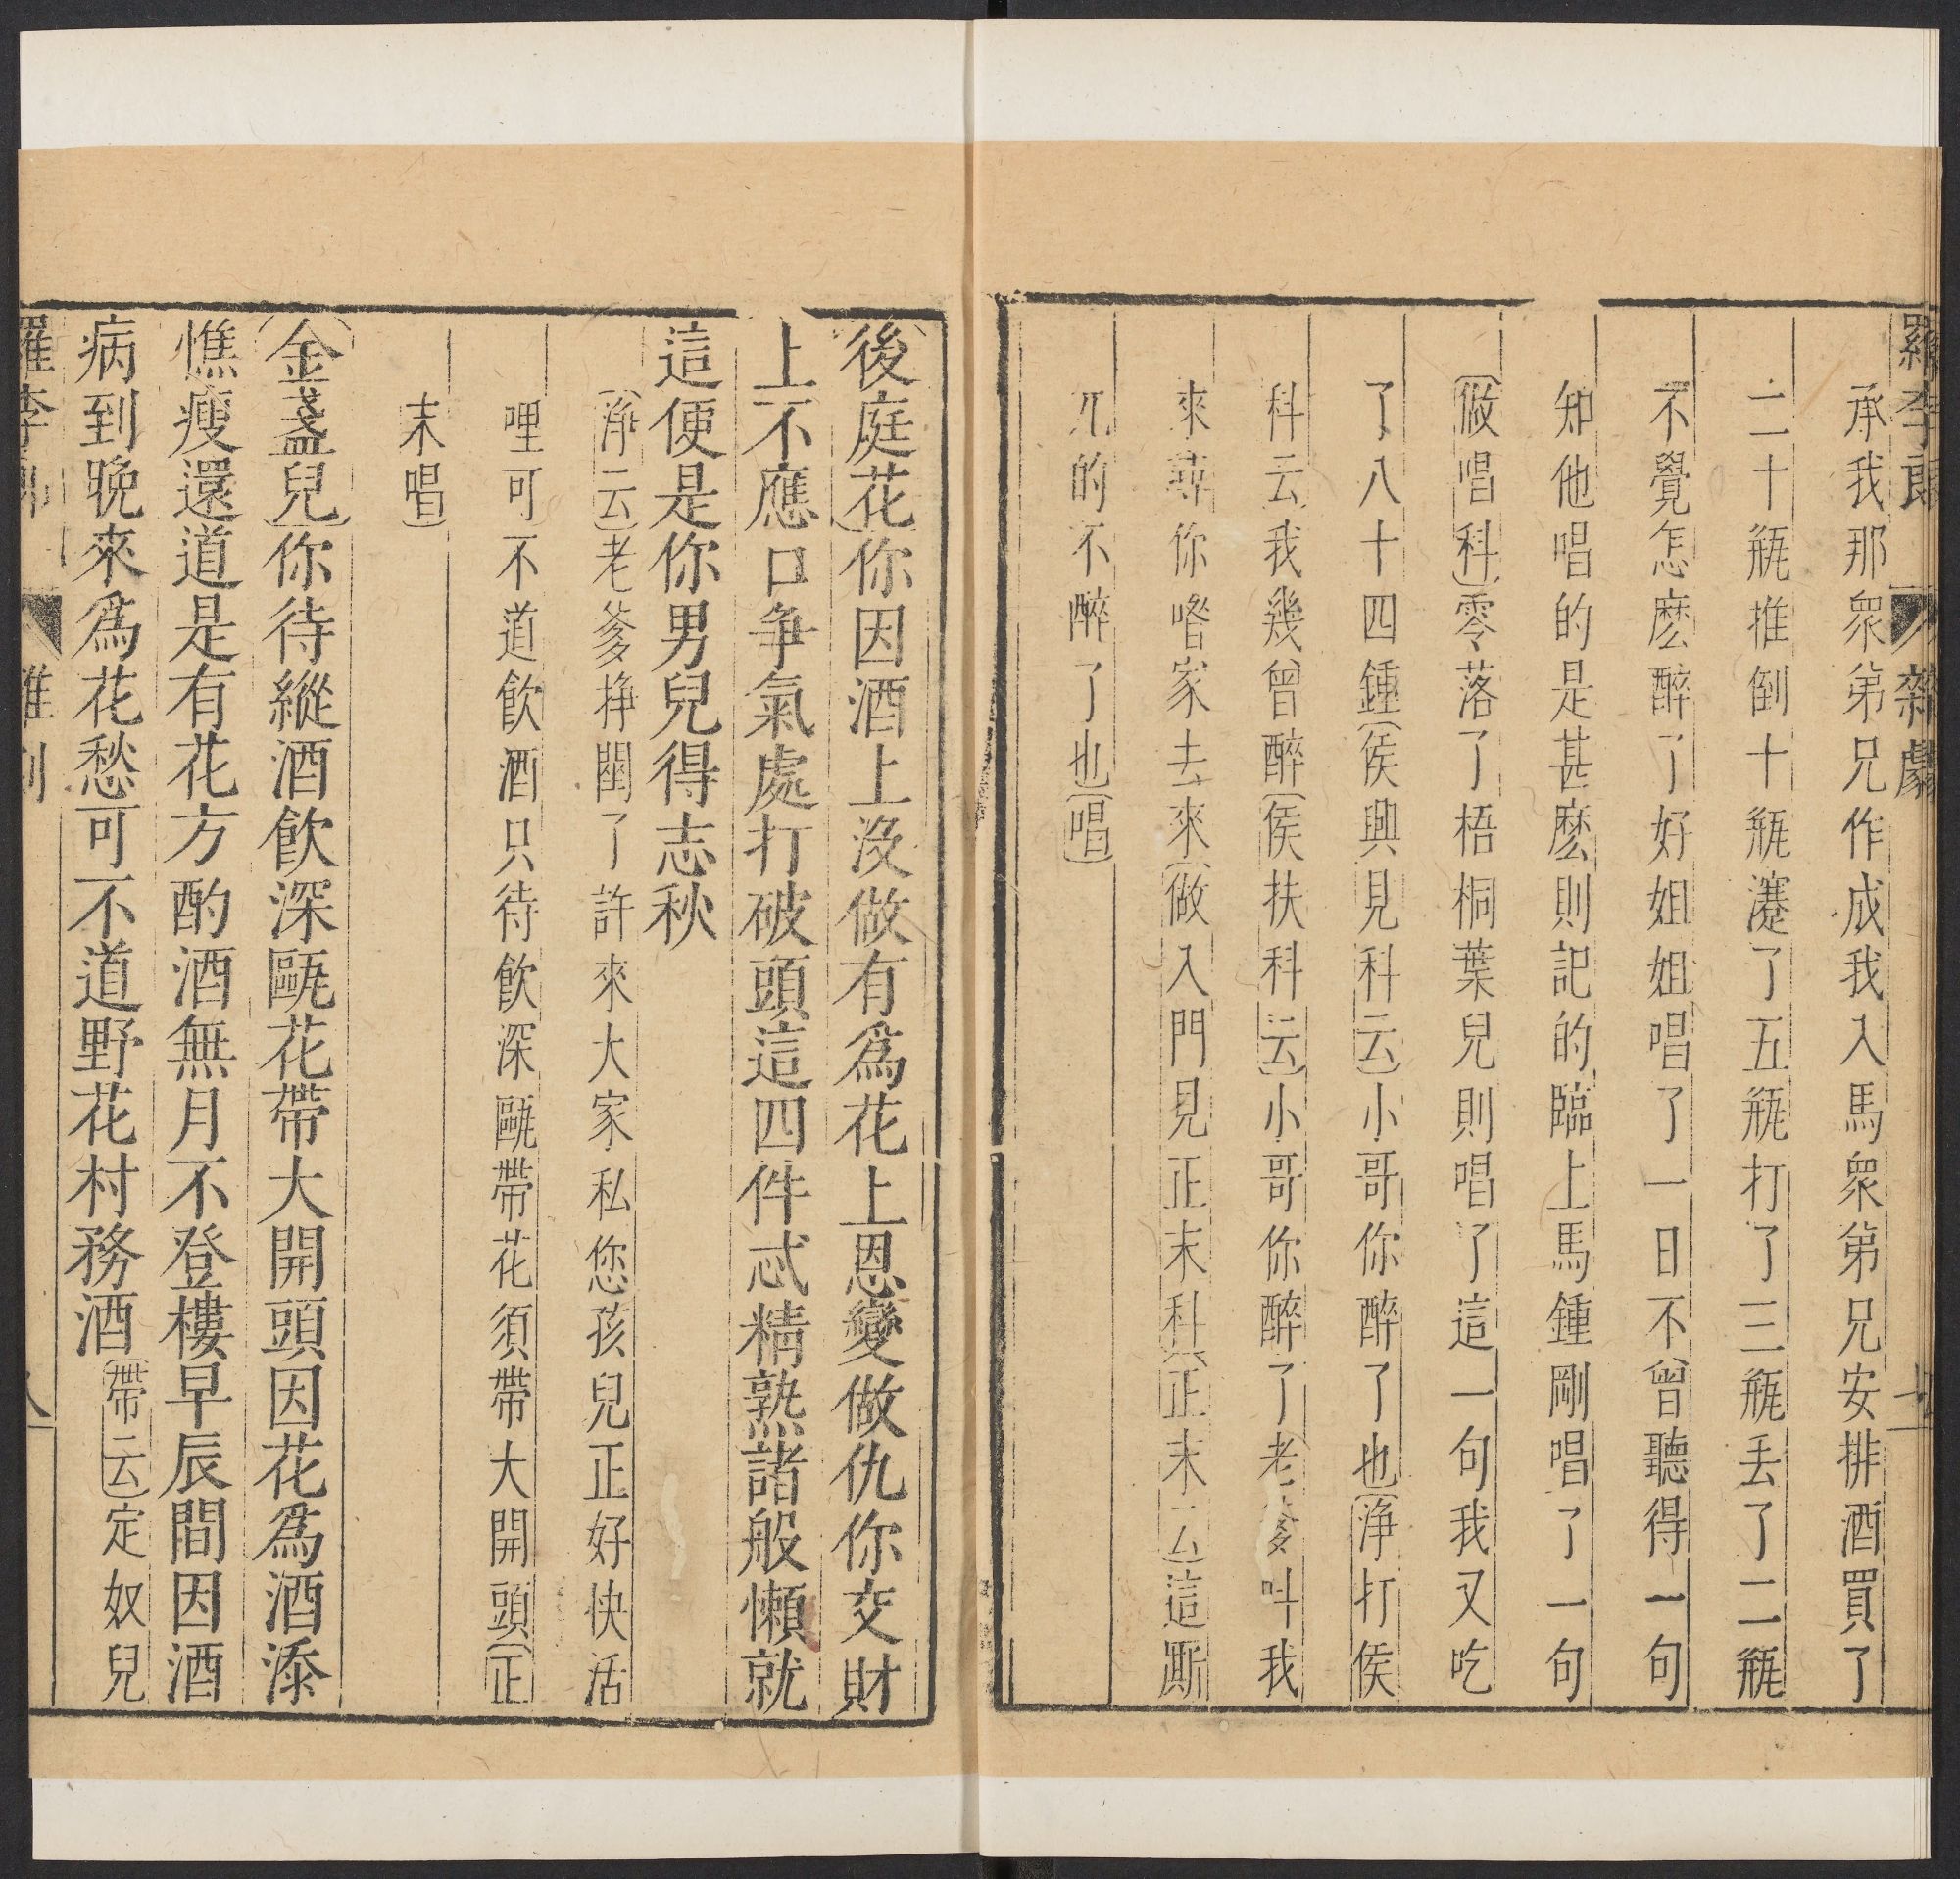 羅李郎 雜劇
承我那眾弟兄作成我入馬眾弟兄安排酒買了
二十瓶推倒十瓶灑了五瓶打了三瓶丢了二瓶
不覺怎麽醉了好姐姐唱了一日不曾聽得一句
知他唱的是甚麽則記的臨上馬鍾剛唱了一句
(做唱科)零落了梧桐葉兒則唱了這一句我又吃
了八十四鍾(侯興見科云)小哥你醉了也(淨打侯
科云)我幾曾醉(侯扶科云)小哥你醉了老爹呌我
來尋你喒家去來(做入門見正末科)(正末云)這厮
兀的不醉了也(唱)
(後庭花)你因酒上没做有爲花上恩變做仇你交財
上不應口争氣處打破頭這四件忒精熟諸般懶就
這便是你男兒得志秋
(淨云)老爹掙閣了許來大家私您孩兒正好快活
哩可不道飲酒只待飲深甌帶花須帶大開頭(正
末唱)
(金盞兒)你待縱酒飲深甌花帶大開頭因花爲酒添
憔瘦還道是有花方酌酒無月不登樓早辰間因酒
病到晚來爲花愁可不道野花村務酒(帶云)定奴兒
羅李郎 八